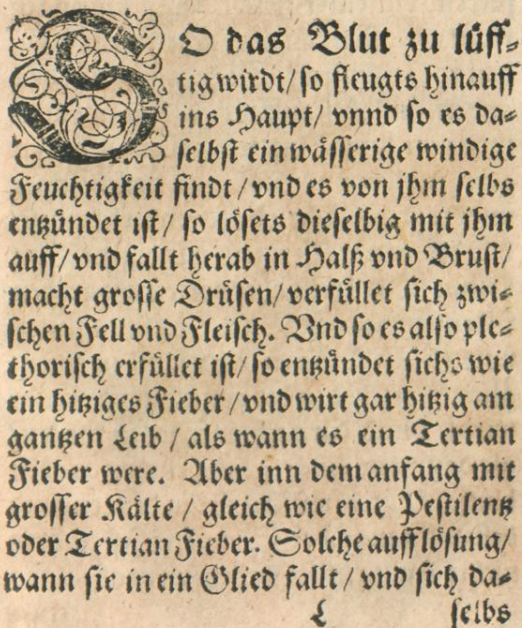 SO das Blut zu lüff⸗
tig wirdt/ so fleugts hinauff
ins Haupt/ vnnd so es da⸗
selbst ein wässerige windige
Feuchtigkeit findt/ vnd es von jhm selbs
entzündet ist/ so lösets dieselbig mit jhm
auff/ vnd fallt herab in Halß vnd Brust/
macht grosse Drüsen/ verfüllet sich zwi⸗
schen Fell vnd Fleisch. Vnd so es also ple⸗
thorisch erfüllet ist/ so entzündet sichs wie
ein hitziges Fieber/ vnd wirt gar hitzig am
gantzen Leib/ als wann es ein Tertian
Fieber were. Aber inn dem anfang mit
grosser Kälte/ gleich wie eine Pestilentz
oder Tertian Fieber. Solche aufflösung/
wann sie in ein Glied fallt/ vnd sich da⸗
L selbs